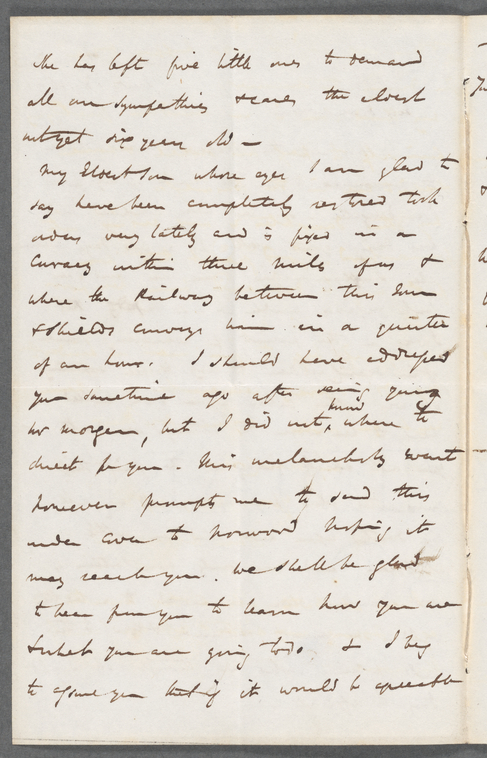 She has left five little ones to demand
all our sympathies & cares the eldest
not yet six years old —
My Eldest Son whose eyes I am glad to
say have been completely restored took
orders very lately and is fixed in a
Curacy within three miles of us &
where the Railway between this Town
& Shields conveys him in a quarter
of an hour. I should have addressed
you sometime ago after seeing young
Mr Morgan, but I did not know where to
direct to you. This melancholy event
however prompts me to send this
under cover to Norwood hoping it
may reach you. We shall be glad
to hear from you to learn how you are
& what you are going to do & I beg
to assure you that if it would be agreeable